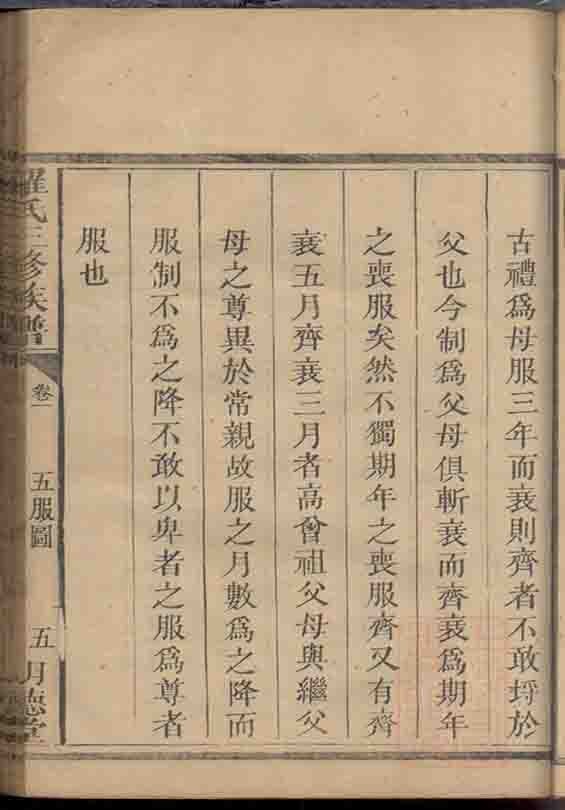 古禮爲母服三年而衰則齊者不敢埒於
父也今制爲父母俱斬衰而齊衰爲期年
之喪服矣然不獨期年之喪服齊又有齊
衰五月齊衰三月者高曾祖父母與繼父
母之尊異於常親故服之月數爲之降而
服制不爲之降不敢以卑者之服爲尊者
服也
羅氏三修族譜 卷一 五服圖 五 明德堂